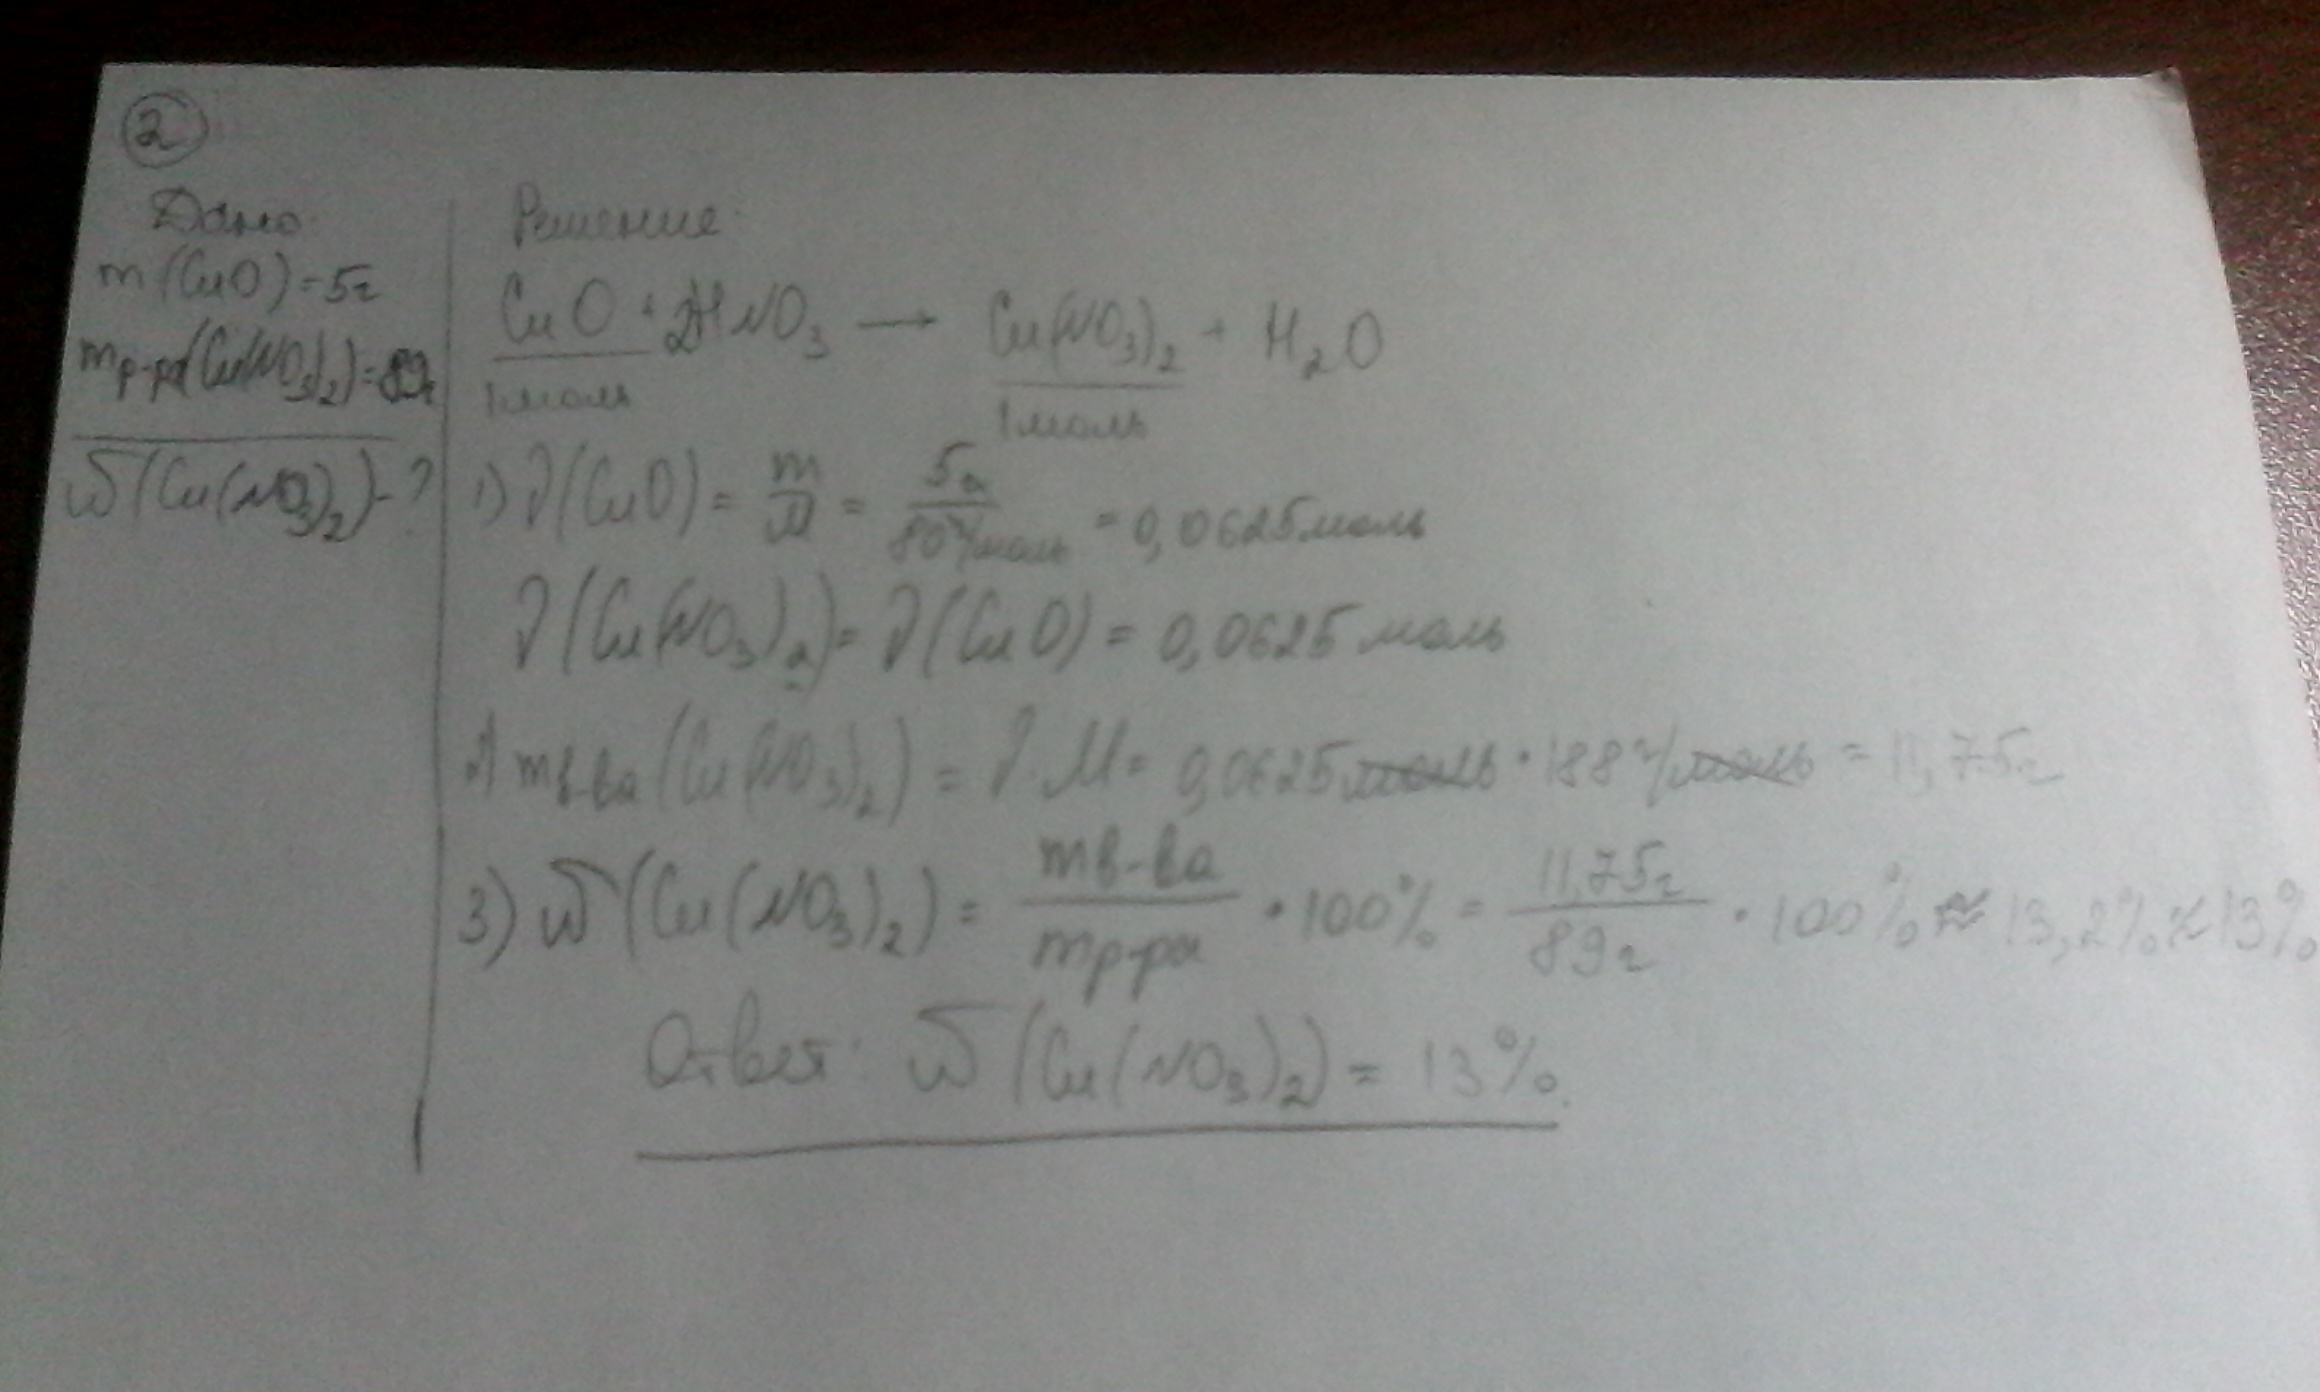 2
Дано:
m(CuO)=5г
mр-ра(Cu(NO3)2)=89г
ω(Cu(NO3)2)-?
Решение:
CuO + 2HNO3 → Cu(NO3)2 + H2O
1моль 1моль
1) ν(CuO) = m/M = 5г/80г/моль = 0,0625моль
ν(Cu(NO3)2) = ν(CuO) = 0,0625 моль
2) mв-ва(Cu(NO3)2) = ν·M = 0,0625моль · 188г/моль = 11,75г
3) ω(Cu(NO3)2) = mв-ва/mр-ра · 100% = 11,75г/89г · 100% ≈ 13,2% ≈ 13%
Ответ: ω(Cu(NO3)2) = 13%.